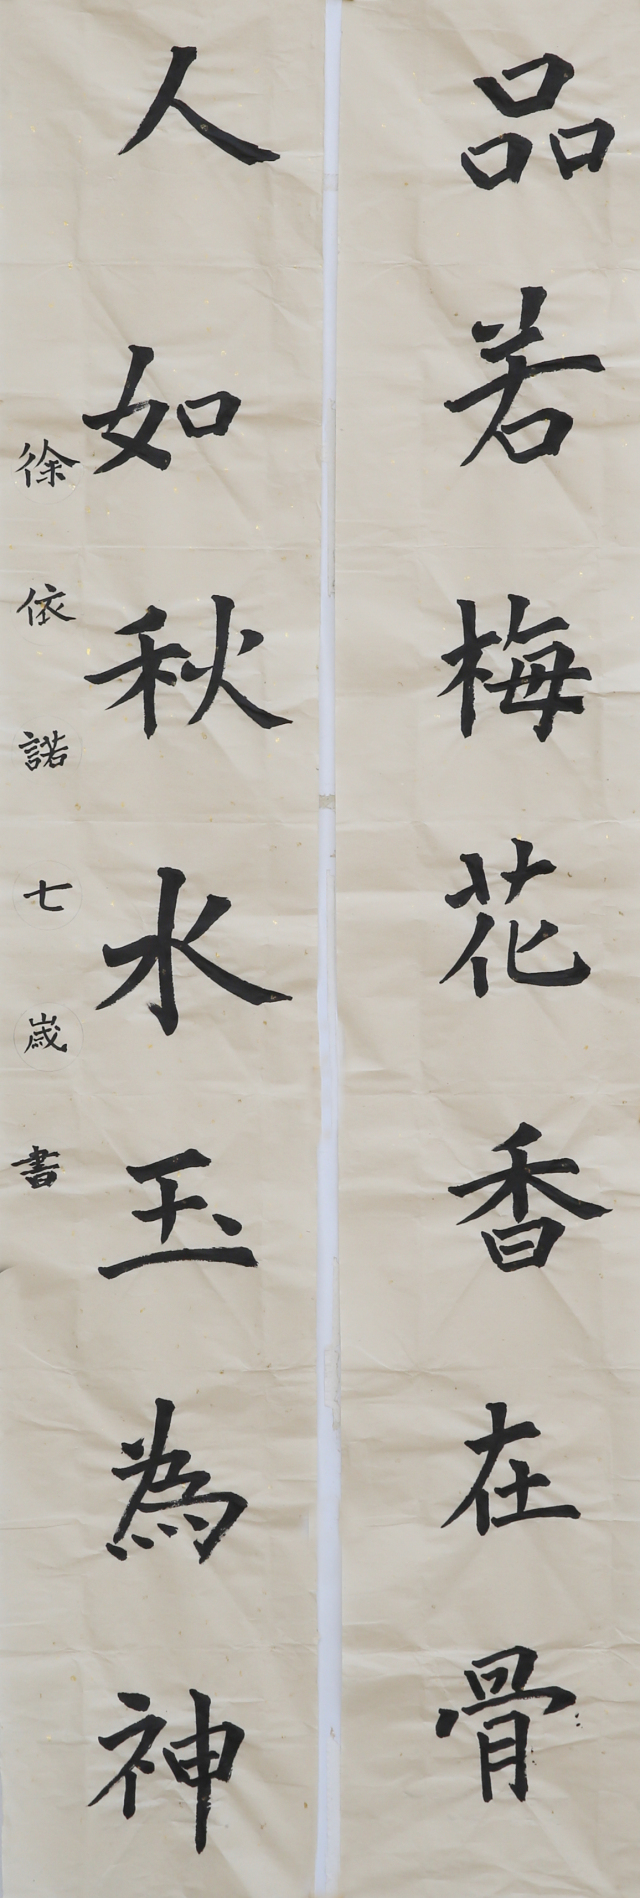 品若梅花香在骨
人如秋水玉為神
徐依諾七歲書